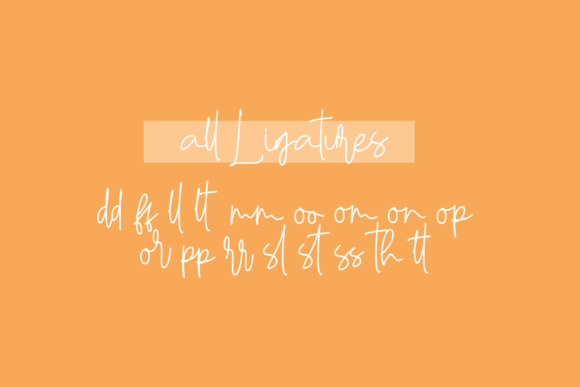 all Ligatures
dd ff ll lt mm oo om on op
or pp rr sl st ss th tt